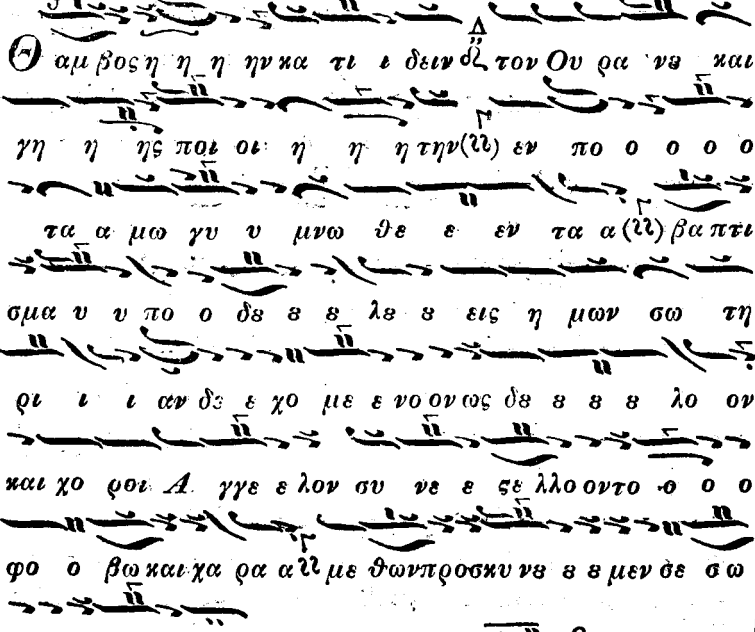 Θ αμ βος η η η ην κα τι ι δειν τον Ου ρα νȣ και
γη η ης ποι οι η η η την εν πο ο ο ο ο
τα α μω γυ υ μνω θε ε εν τα α βα πτι
σμα υ υ πο ο δȣ ȣ ȣ λȣ ȣ εις η μων σω τη
ρι ι ι ι αν δε ε χο με ε νο ον ως δȣ ȣ ȣ ȣ λο ον
και χο ροι Α γγε ε λον συ νε ε ςε λλο οντο ο ο ο
φο ο βω και χα ρα α με θων προσκυ νȣ ȣ ȣ μεν σε σω